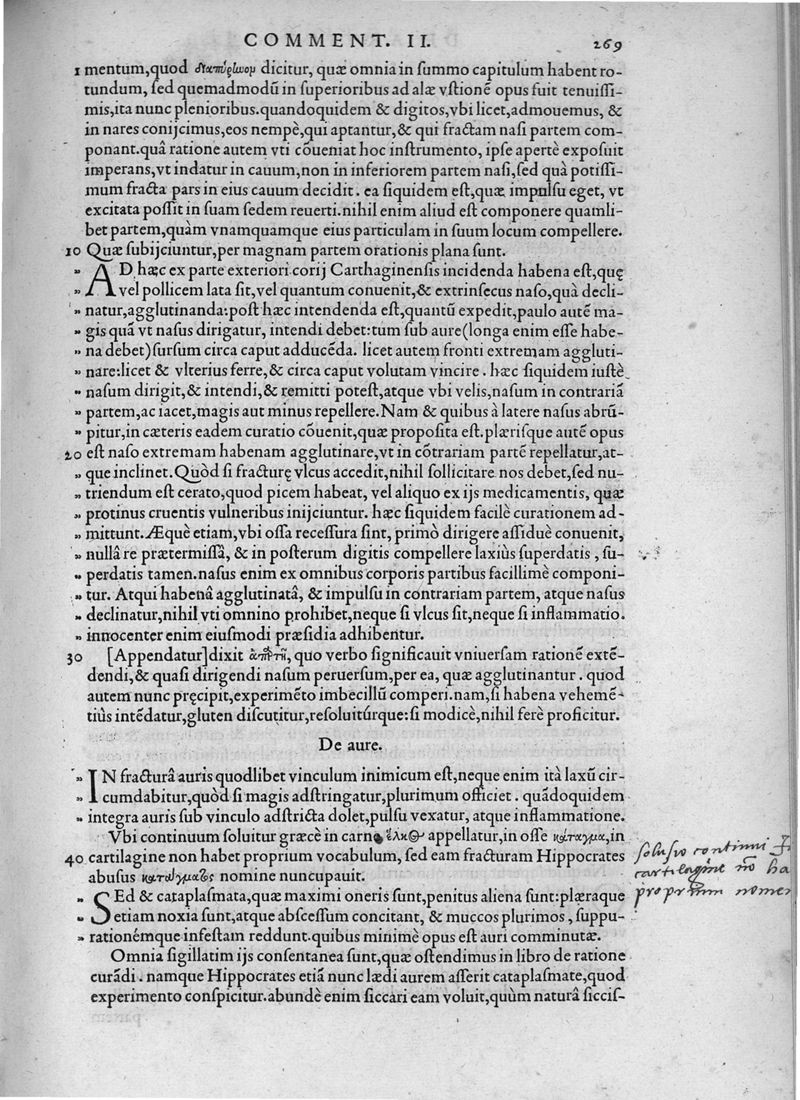 COMMENT. II. 269
1 mentum,quod διαπύρινον dicitur, quæ omnia in summo capitulum habent ro-
tundum, sed quemadmodū in superioribus ad alæ vstionē opus fuit tenuissi-
mis,ita nunc plenioribus.quandoquidem & digitos,vbi licet,admouemus, &
in nares conijcimus,eos nempè,qui aptantur,& qui fractam nasi partem com-
ponant.quâ ratione autem vti cōueniat hoc instrumento, ipse apertè exposuit
imperans,vt indatur in cauum,non in inferiorem partem nasi,sed quà potissi-
mum fracta pars in eius cauum decidit. ea siquidem est,quæ impulsu eget, vt
excitata possit in suam sedem reuerti.nihil enim aliud est componere quamli-
bet partem,quàm vnamquamque eius particulam in suum locum compellere.
10 Quæ subijciuntur,per magnam partem orationis plana sunt.
„ AD hæc ex parte exteriori corij Carthaginensis incidenda habena est,quę
„ vel pollicem lata sit,vel quantum conuenit,& extrinsecus naso,quà decli-
„ natur,agglutinanda:post hæc intendenda est,quantū expedit,paulo autē ma-
„ gis quā vt nasus dirigatur, intendi debet:tum sub aure(longa enim esse habe-
„ na debet)sursum circa caput adducēda. licet autem fronti extremam aggluti-
„ nare:licet & vlterius ferre,& circa caput volutam vincire. hæc siquidem iustè
„ nasum dirigit,& intendi,& remitti potest,atque vbi velis,nasum in contrariā
„ partem,ac iacet,magis aut minus repellere.Nam & quibus à latere nasus abrū-
„ pitur,in cæteris eadem curatio cōuenit,quæ proposita est.plærisque autē opus
20 est naso extremam habenam agglutinare,vt in cōtrariam partē repellatur,at-
„ que inclinet.Quòd si fracturę vlcus accedit,nihil sollicitare nos debet,sed nu-
„ triendum est cerato,quod picem habeat, vel aliquo ex ijs medicamentis, quæ
„ protinus cruentis vulneribus inijciuntur. hæc siquidem facilè curationem ad-
„ mittunt.Æquè etiam,vbi ossa recessura sint, primò dirigere assiduè conuenit,
„ nullâ re prætermissâ, & in posterum digitis compellere laxiùs superdatis, su-
„ perdatis tamen.nasus enim ex omnibus corporis partibus facillimè componi-
„ tur. Atqui habenâ agglutinatâ, & impulsu in contrariam partem, atque nasus
„ declinatur,nihil vti omnino prohibet,neque si vlcus sit,neque si inflammatio.
„ innocenter enim eiusmodi præsidia adhibentur.
30 [Appendatur]dixit quo verbo significauit vniuersam rationē extē-
dendi,& quasi dirigendi nasum peruersum,per ea, quæ agglutinantur. quod
autem nunc pręcipit,experimēto imbecillū comperi.nam,si habena vehemē-
tiùs intēdatur,gluten discutitur,resoluitúrque:si modicè,nihil ferè proficitur.
De aure.
„ IN fracturâ auris quodlibet vinculum inimicum est,neque enim ità laxū cir-
„ cumdabitur,quòd si magis adstringatur,plurimum officiet. quādoquidem
„ integra auris sub vinculo adstricta dolet,pulsu vexatur, atque inflammatione.
Vbi continuum soluitur græcè in carne ἕλκος appellatur,in osse κάταγμα,in
40 cartilagine non habet proprium vocabulum, sed eam fracturam Hippocrates
abusus κατάγματος nomine nuncupauit.
„ SEd & cataplasmata,quæ maximi oneris sunt,penitus aliena sunt:plæraque
„ etiam noxia sunt,atque abscessum concitant, & muccos plurimos, suppu-
„ rationémque infestam reddunt.quibus minimè opus est auri comminutæ.
Omnia sigillatim ijs consentanea sunt,quæ ostendimus in libro de ratione
curādi. namque Hippocrates etiā nunc lædi aurem asserit cataplasmate,quod
experimento conspicitur.abundè enim siccari eam voluit,quùm naturâ siccis-
solusio continui
cartilagine no ha
proprium nomen